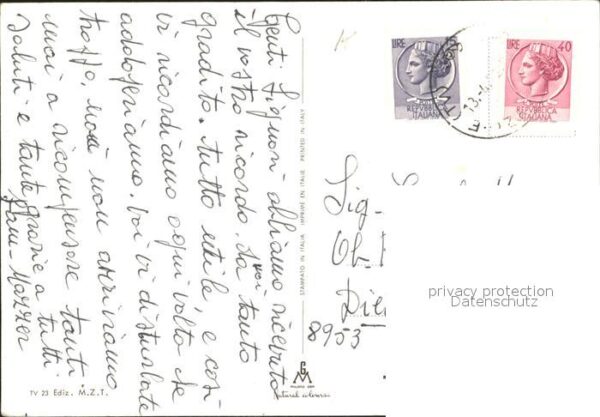 Genti Signori abbiamo ricevuto
il vostro ricordo, da tanto
gradito. tutto utile e così
vi ricordiamo ogni volta che
adoperiamo. Voi vi disturbate
troppo, noi non arriviamo
mai a ricompensare tanti
saluti e tante grazie a tutti
Fam-
TV 23 Ediz. M.Z.T.
STAMPATO IN ITALIA IMPRIMÉ EN ITALIE PRINTED IN ITALY
GM
Natural colores
LIRE
REPUBBLICA
ITALIANA
LIRE 40
REPUBBLICA
ITALIANA
Sig-
Ob-
Die
8953
privacy protection
Datenschutz